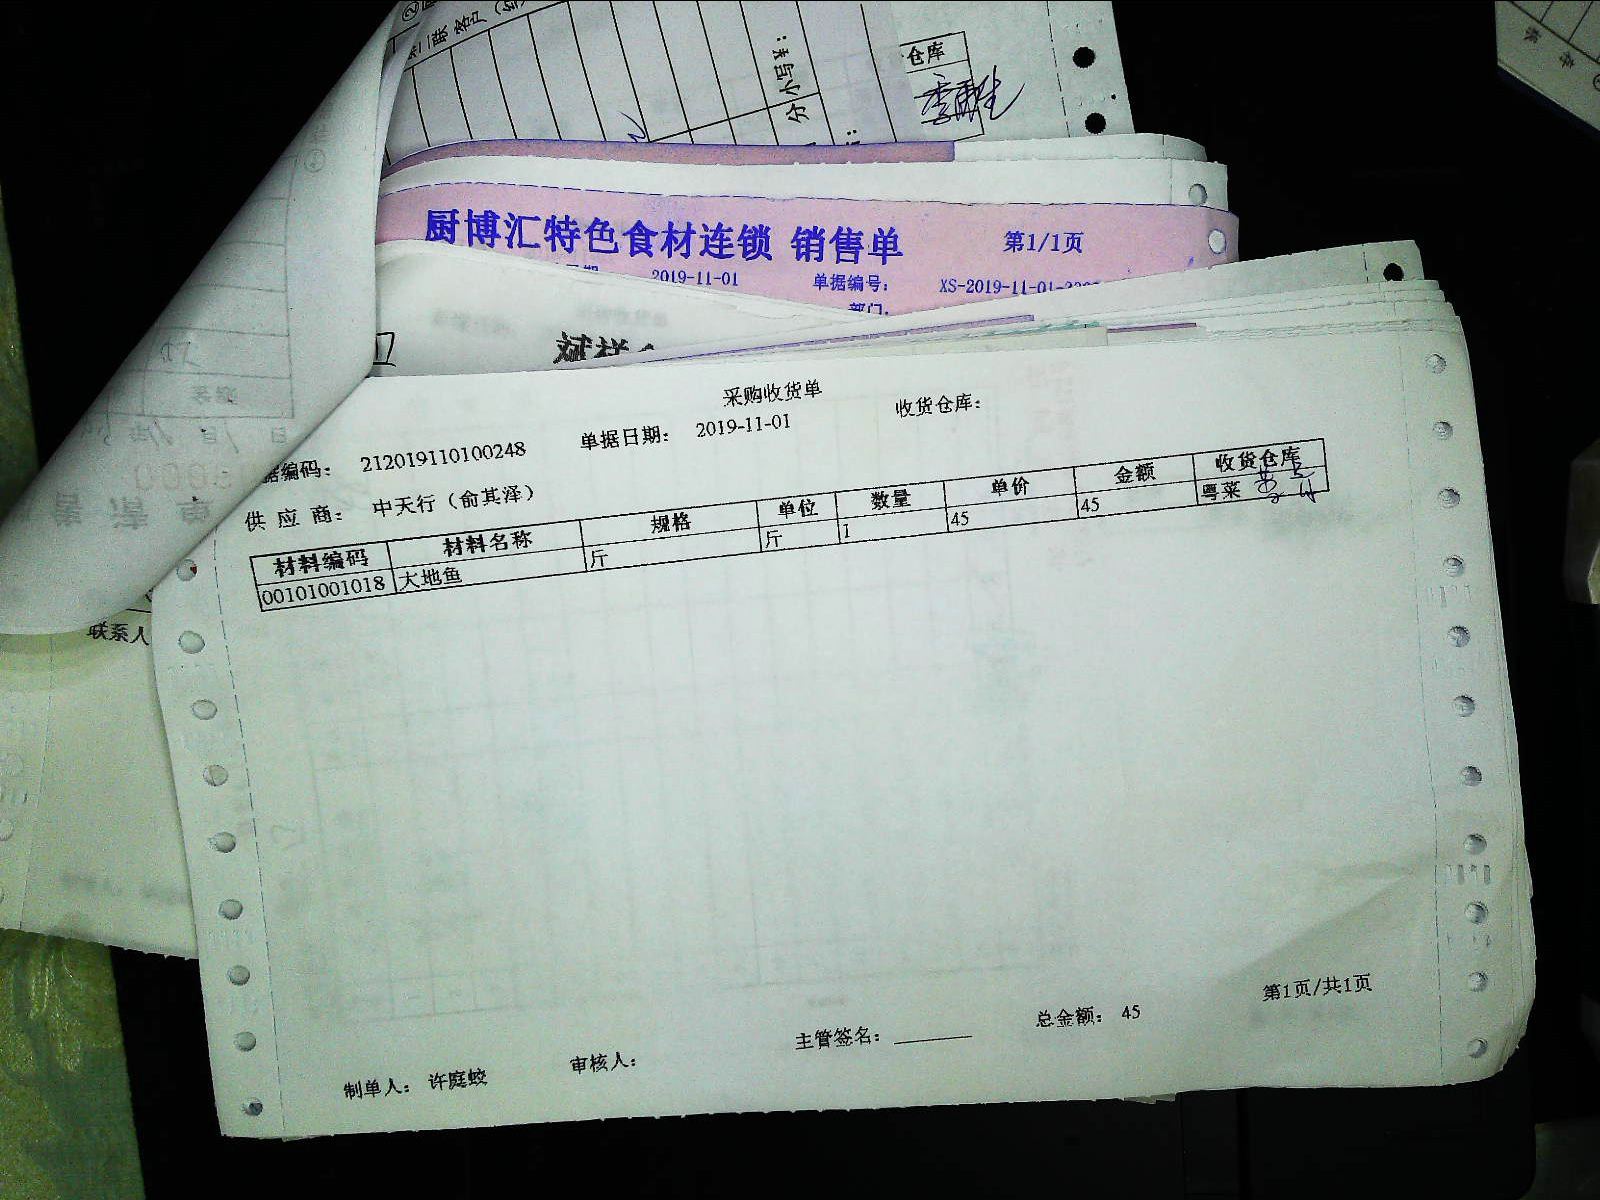 第二联 客户
小写：
分
仓库
厨博汇特色食材连锁 销售单 第1/1页
2019-11-01 单据编号： XS-2019-11-01-
部门：
斌祥
采购收货单
据编码： 212019110100248 单据日期： 2019-11-01 收货仓库：
供应商： 中天行（俞其泽）
材料编码 材料名称 规格 单位 数量 单价 金额 收货仓库
00101001018 大地鱼 斤 斤 1 45 45 粤菜
联系人
制单人： 许庭蛟 审核人： 主管签名： 总金额： 45 第1页/共1页